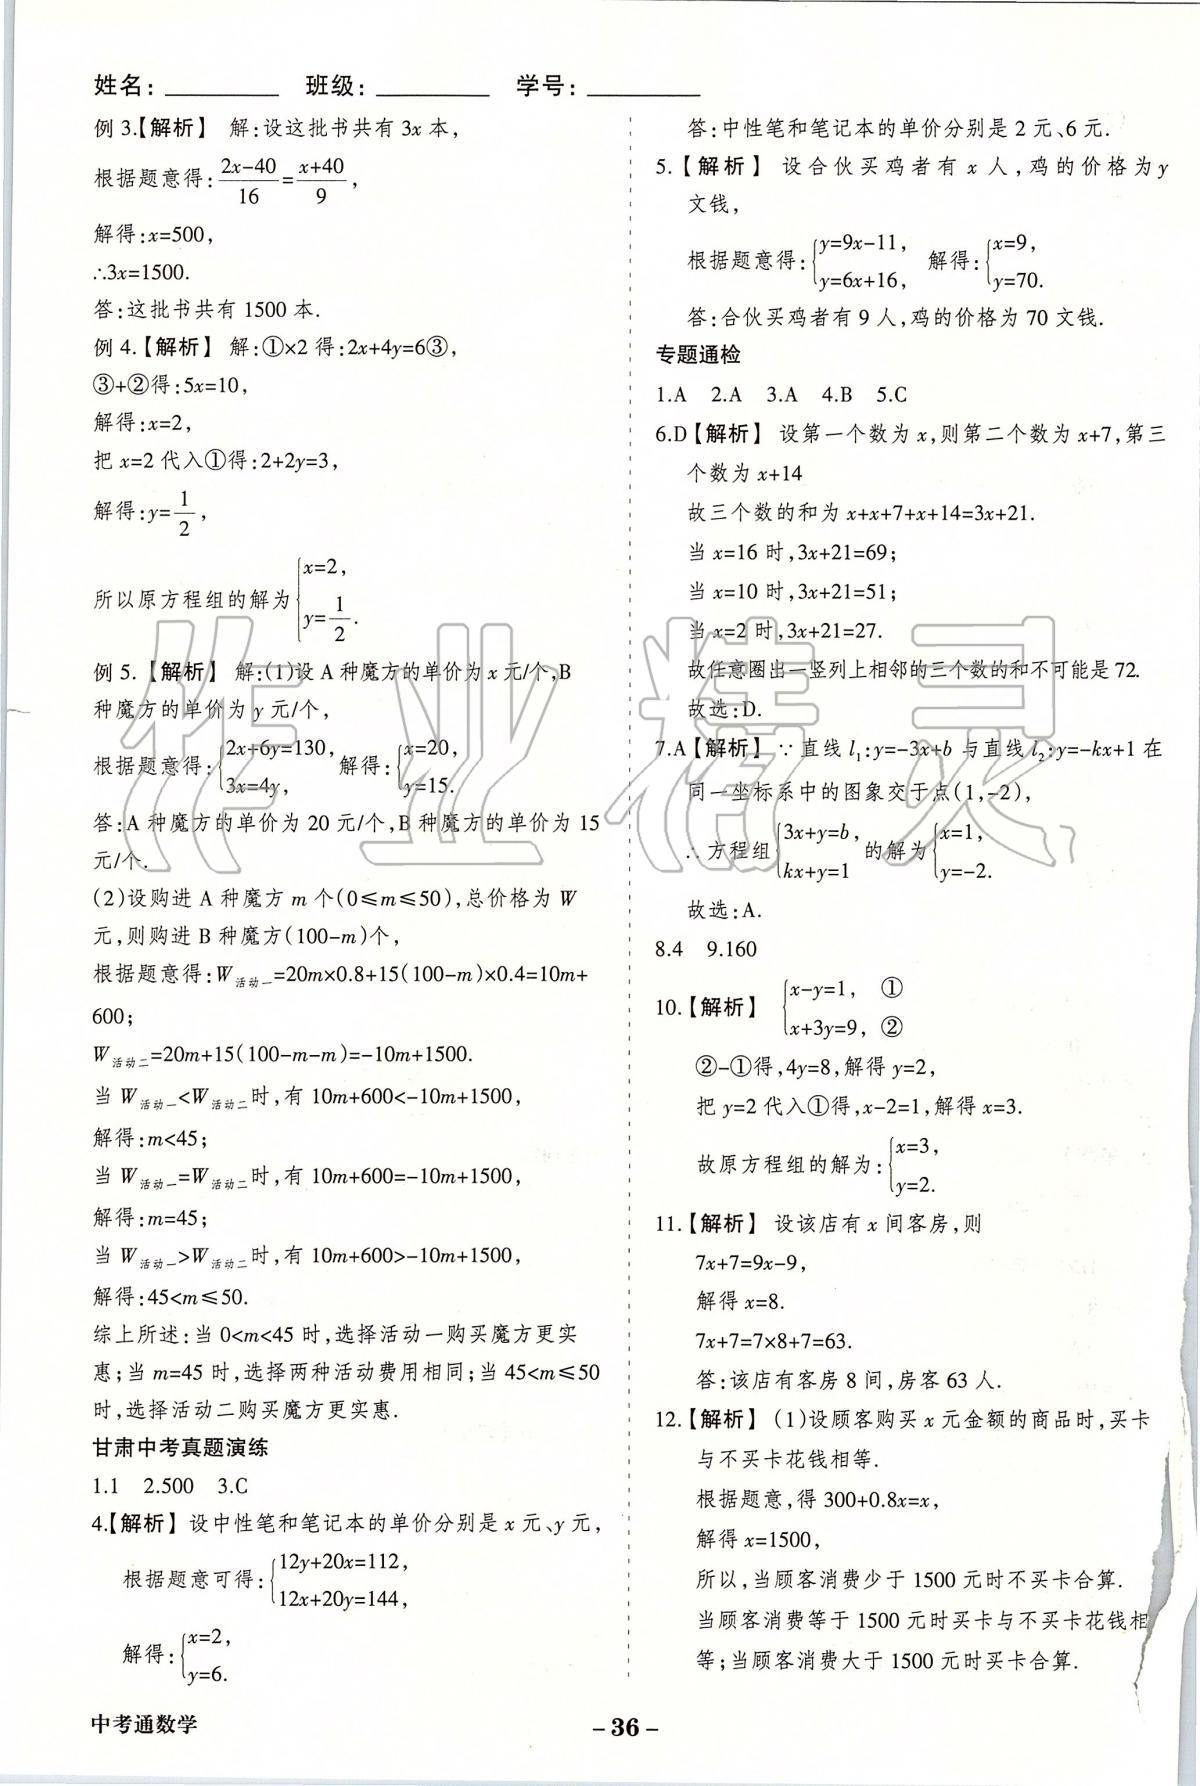 姓名：________ 班级：________ 学号：________
例 3.【解析】 解：设这批书共有 3x 本，
根据题意得：(2x-40)/16=(x+40)/9，
解得：x=500，
∴3x=1500.
答：这批书共有 1500 本.
例 4.【解析】 解：①×2 得：2x+4y=6③，
③+②得：5x=10，
解得：x=2，
把 x=2 代入①得：2+2y=3，
解得：y=1/2，
所以原方程组的解为{x=2，
y=1/2.
例 5.【解析】 解：(1)设 A 种魔方的单价为 x 元/个，B
种魔方的单价为 y 元/个，
根据题意得：{2x+6y=130， 3x=4y， 解得：{x=20， y=15.
答：A 种魔方的单价为 20 元/个，B 种魔方的单价为 15
元/个.
(2)设购进 A 种魔方 m 个(0≤m≤50)，总价格为 W
元，则购进 B 种魔方(100-m)个，
根据题意得：W活动一=20m×0.8+15(100-m)×0.4=10m+
600；
W活动二=20m+15(100-m-m)=-10m+1500.
当 W活动一<W活动二时，有 10m+600<-10m+1500，
解得：m<45；
当 W活动一=W活动二时，有 10m+600=-10m+1500，
解得：m=45；
当 W活动一>W活动二时，有 10m+600>-10m+1500，
解得：45<m≤50.
综上所述：当 0<m<45 时，选择活动一购买魔方更实
惠；当 m=45 时，选择两种活动费用相同；当 45<m≤50
时，选择活动二购买魔方更实惠.
甘肃中考真题演练
1.1 2.500 3.C
4.【解析】 设中性笔和笔记本的单价分别是 x 元、y 元，
根据题意可得：{12y+20x=112， 12x+20y=144，
解得：{x=2， y=6.
答：中性笔和笔记本的单价分别是 2 元、6 元.
5.【解析】 设合伙买鸡者有 x 人，鸡的价格为 y
文钱，
根据题意得：{y=9x-11， y=6x+16， 解得：{x=9， y=70.
答：合伙买鸡者有 9 人，鸡的价格为 70 文钱.
专题通检
1.A 2.A 3.A 4.B 5.C
6.D【解析】 设第一个数为 x，则第二个数为 x+7，第三
个数为 x+14
故三个数的和为 x+x+7+x+14=3x+21.
当 x=16 时，3x+21=69；
当 x=10 时，3x+21=51；
当 x=2 时，3x+21=27.
故任意圈出一竖列上相邻的三个数的和不可能是 72.
故选：D.
7.A【解析】 ∵直线 l₁：y=-3x+b 与直线 l₂：y=-kx+1 在
同一坐标系中的图象交于点(1，-2)，
∴方程组{3x+y=b， kx+y=1 的解为{x=1， y=-2.
故选：A.
8.4 9.160
10.【解析】 {x-y=1， ①
x+3y=9， ②
②-①得，4y=8，解得 y=2，
把 y=2 代入①得，x-2=1，解得 x=3.
故原方程组的解为：{x=3， y=2.
11.【解析】 设该店有 x 间客房，则
7x+7=9x-9，
解得 x=8.
7x+7=7×8+7=63.
答：该店有客房 8 间，房客 63 人.
12.【解析】 (1)设顾客购买 x 元金额的商品时，买卡
与不买卡花钱相等.
根据题意，得 300+0.8x=x，
解得 x=1500，
所以，当顾客消费少于 1500 元时不买卡合算.
当顾客消费等于 1500 元时买卡与不买卡花钱相
等；当顾客消费大于 1500 元时买卡合算.
作业精灵
中考通数学
-36-